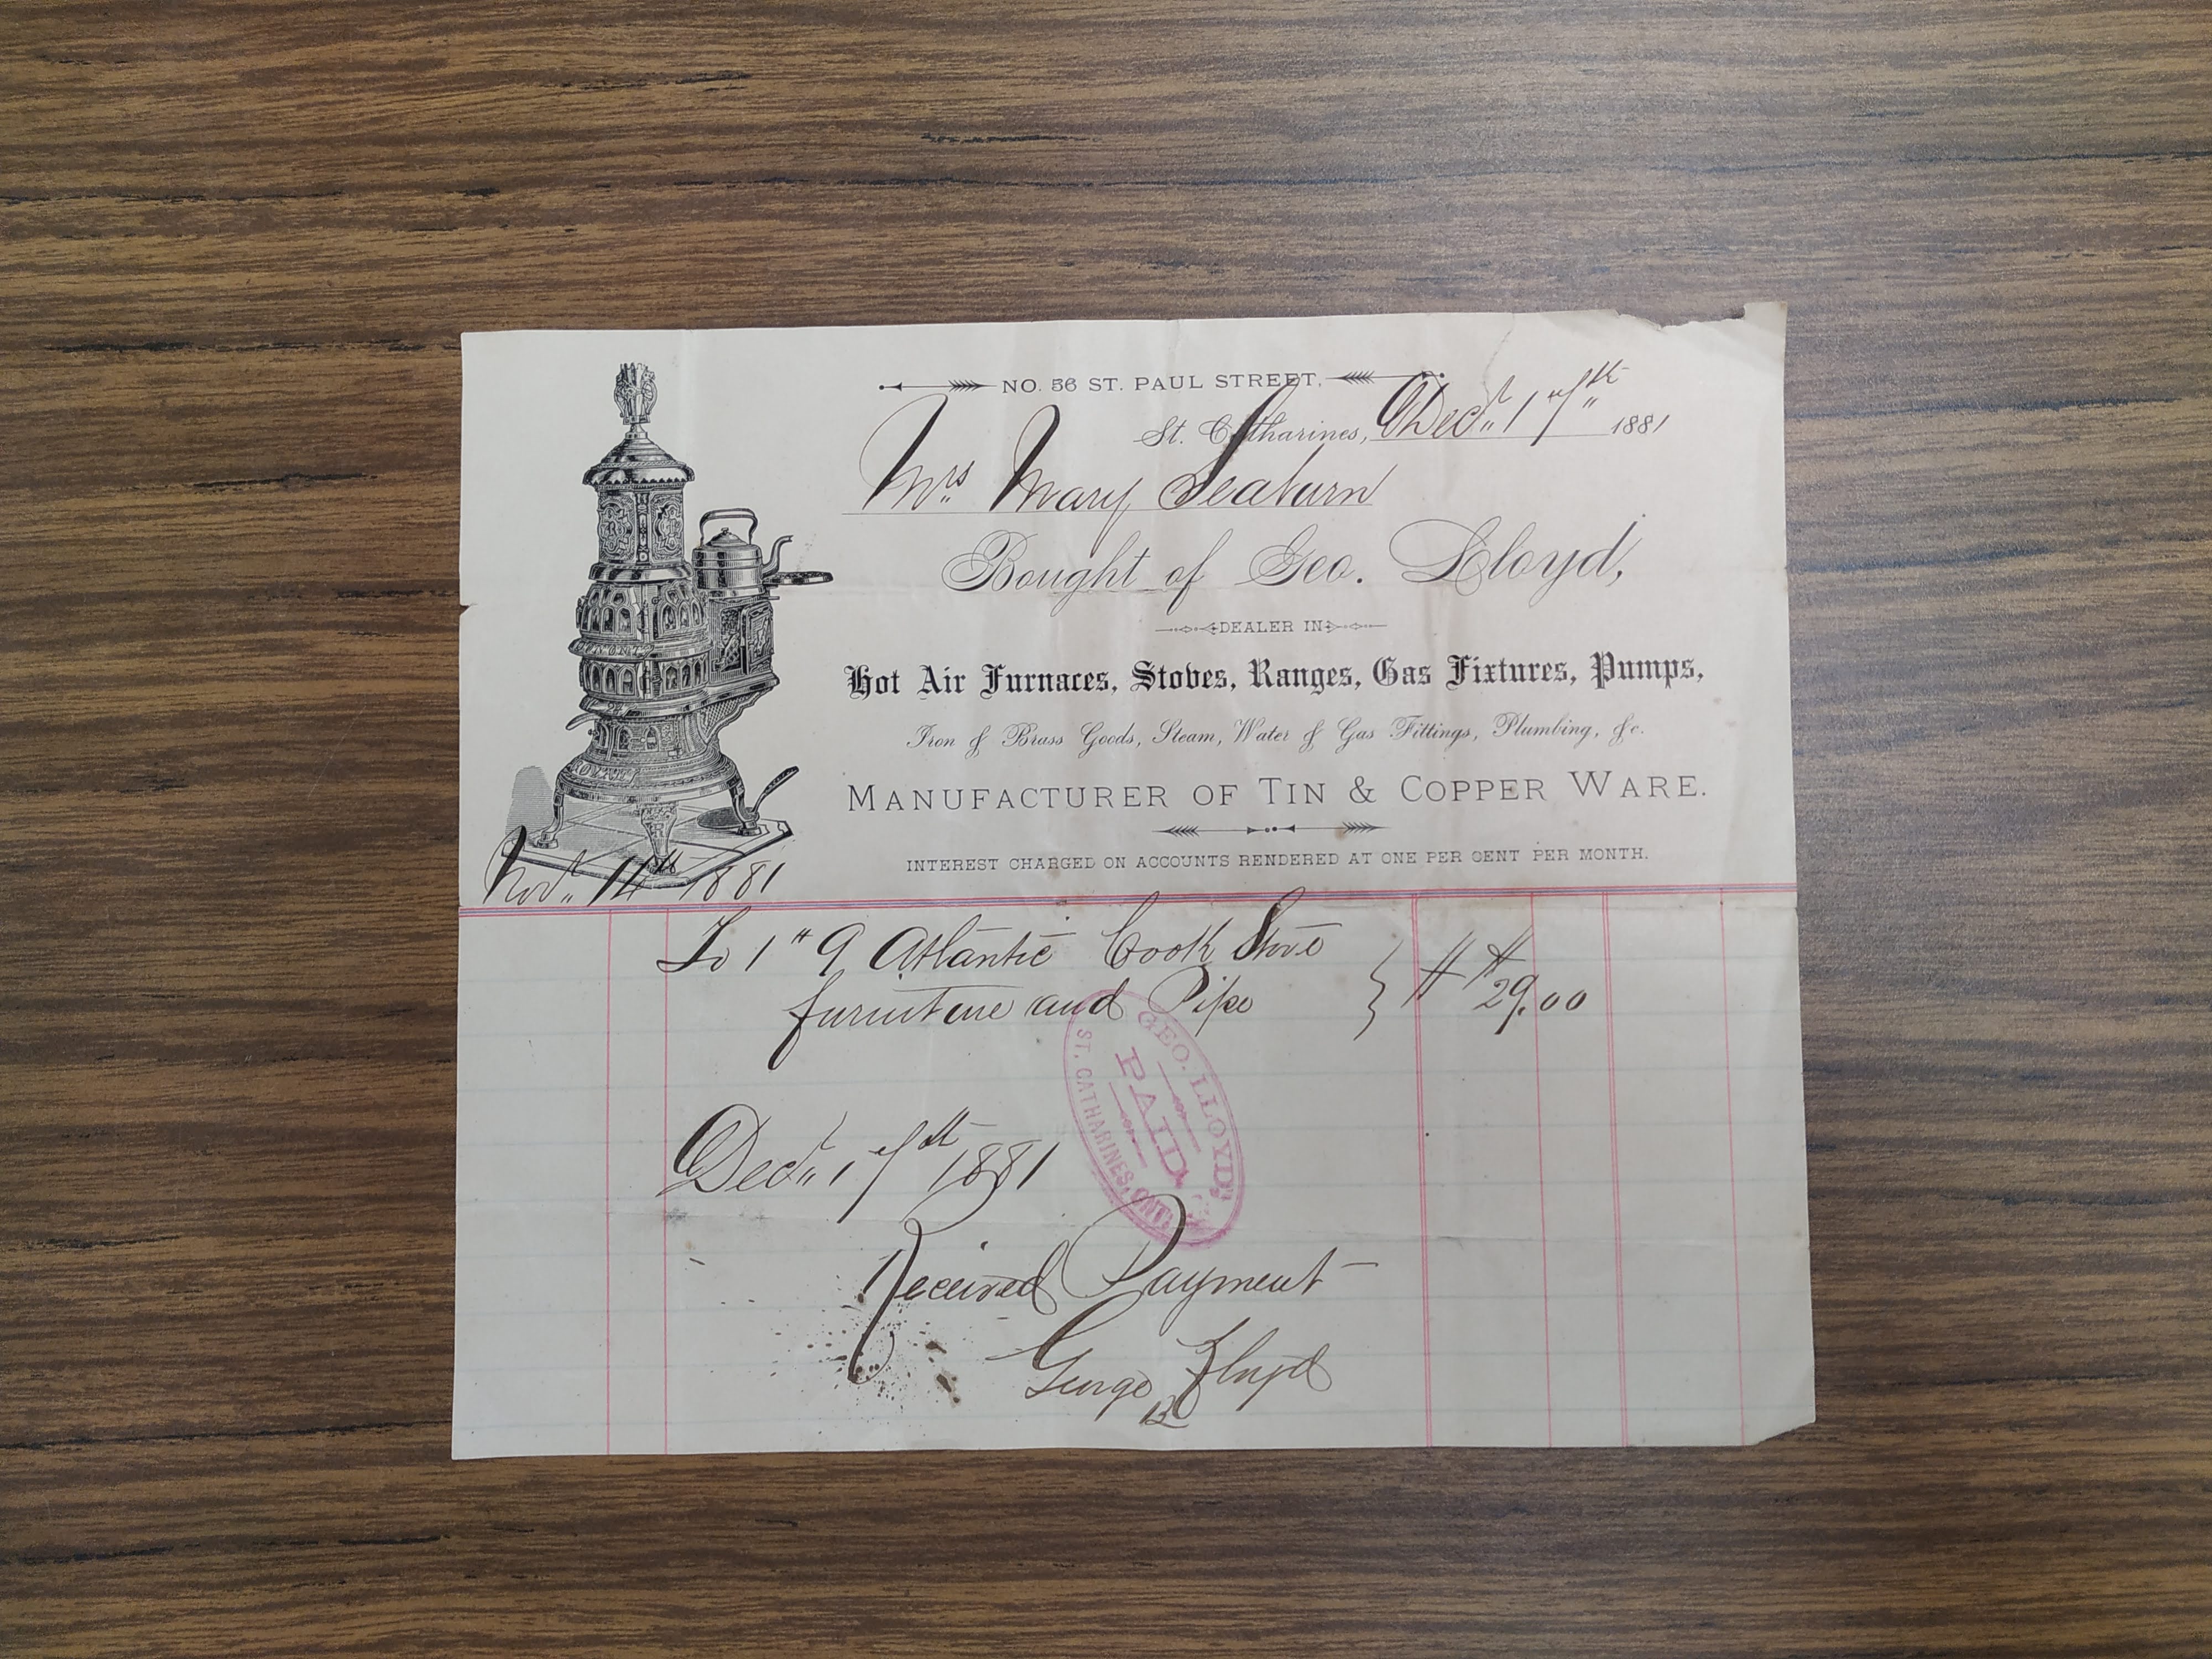 NO. 56 ST. PAUL STREET,
St. Catharines, Decr., 1st 1881
Mrs. Mary
Bought of Geo. Lloyd,
DEALER IN
Hot Air Furnaces, Stoves, Ranges, Gas Fixtures, Pumps,
Iron & Brass Goods, Steam, Water & Gas Fittings, Plumbing, &c.
MANUFACTURER OF TIN & COPPER WARE.
INTEREST CHARGED ON ACCOUNTS RENDERED AT ONE PER CENT PER MONTH.
1881
To 1 " 9 Atlantic Cook Stove
furniture and Pipe } $29.00
GEO. LLOYD
PAID
ST. CATHARINES, ONT.
1881
Received Payment
George Lloyd